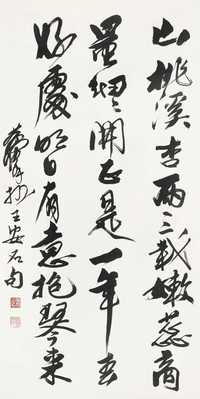 山桃溪杏兩三栽嫩蕊商
量細々開正是一年春
好處明日有意抱琴来
抄王安石句